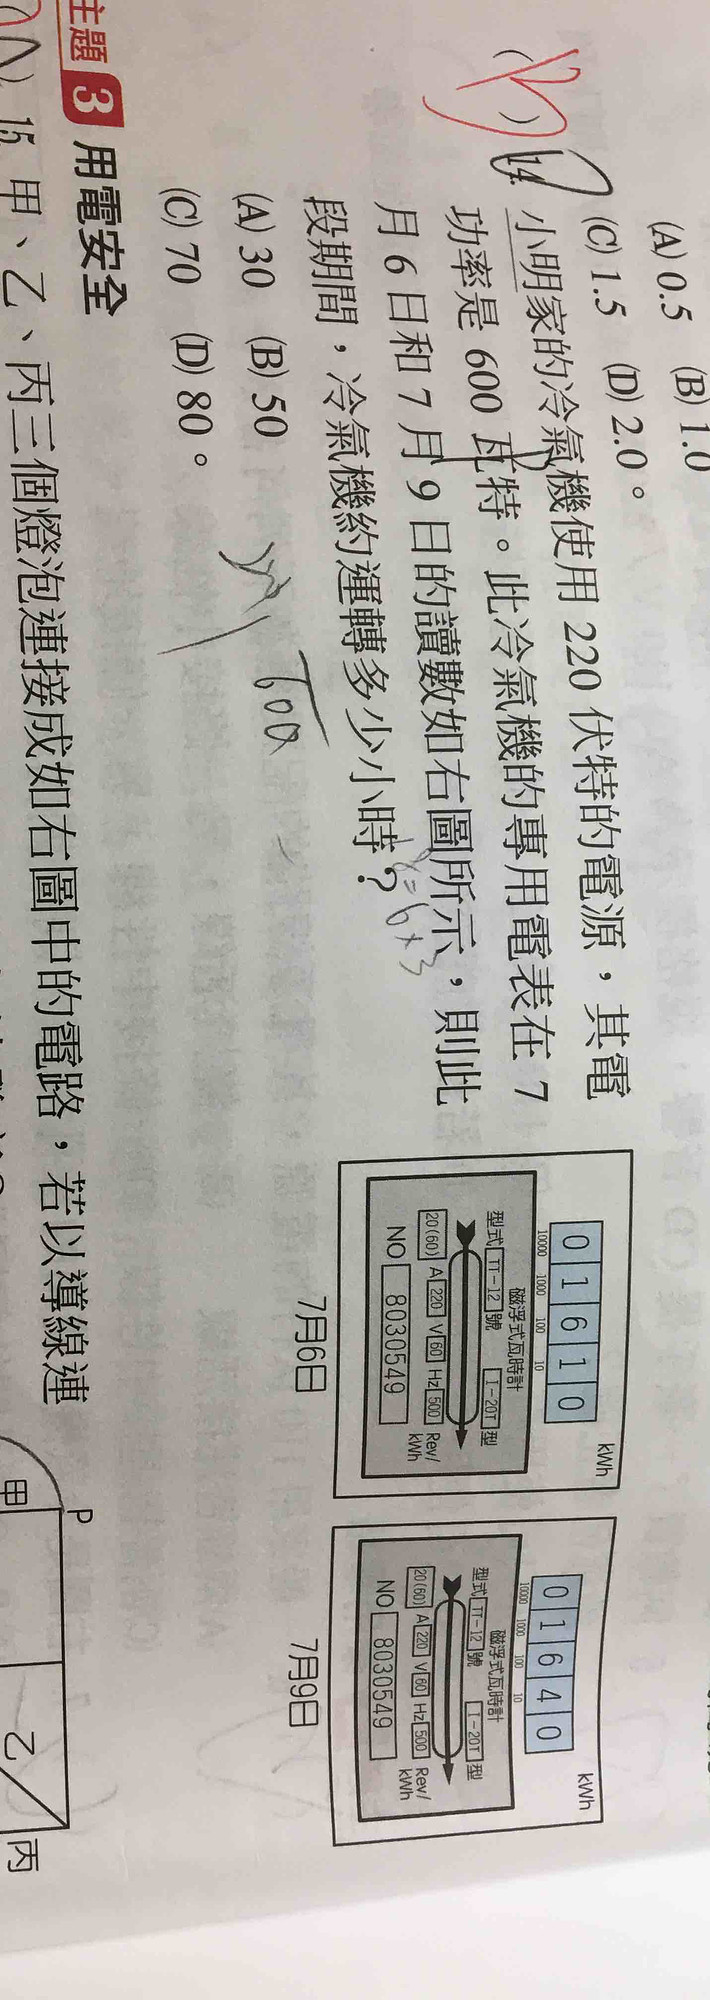 (A) 0.5 (B) 1.0
(C) 1.5 (D) 2.0。
( )14. 小明家的冷氣機使用 220 伏特的電源，其電
功率是 600 瓦特。此冷氣機的專用電表在 7
月 6 日和 7 月 9 日的讀數如右圖所示，則此
段期間，冷氣機約運轉多少小時？
(A) 30 (B) 50
(C) 70 (D) 80。
600
=6×3
0 1 6 1 0
kWh
10000 1000 100 10
磁浮式瓦時計
型式 TT-12 號 I-20T 型
20(60) A 220 V 60 Hz 500 Rev/kWh
NO 8030549
7月6日
0 1 6 4 0
kWh
10000 1000 100 10
磁浮式瓦時計
型式 TT-12 號 I-20T 型
20(60) A 220 V 60 Hz 500 Rev/kWh
NO 8030549
7月9日
主題 3 用電安全
15. 甲、乙、丙三個燈泡連接成如右圖中的電路，若以導線連
P
甲
乙
丙